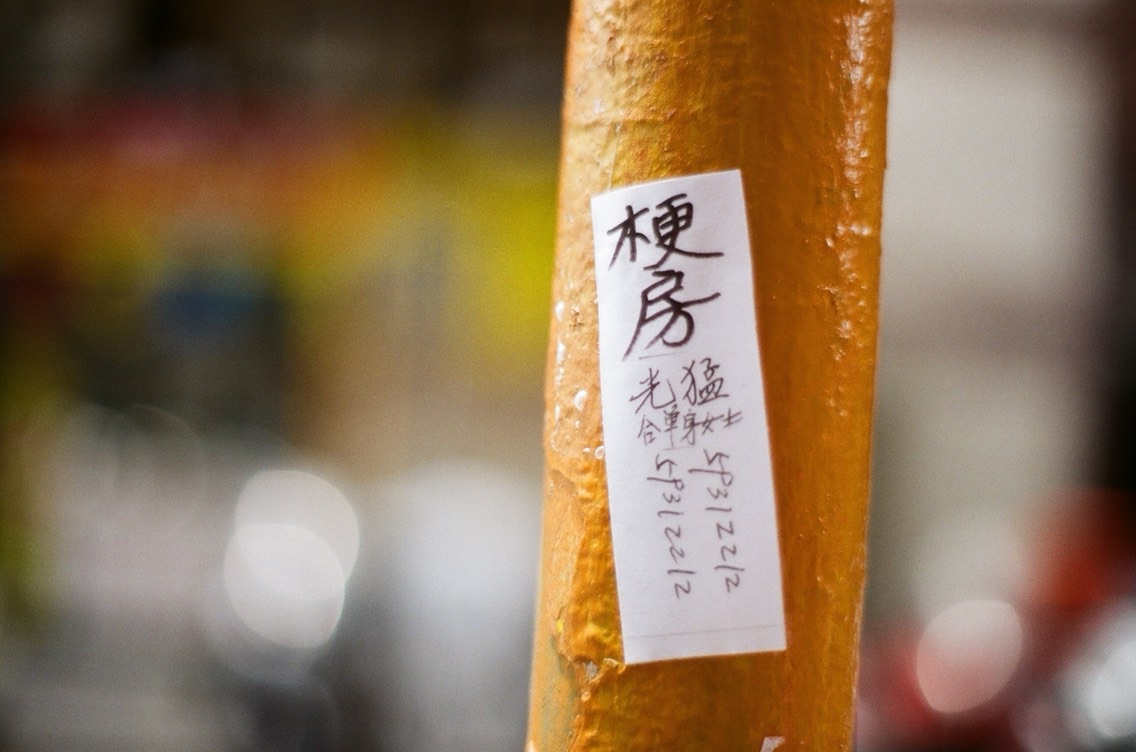 梗
房
光猛
合單身女士
59312212
59312212